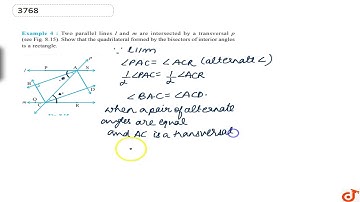 3768
Example 4 : Two parallel lines l and m are intersected by a transversal p
(see Fig. 8.15). Show that the quadrilateral formed by the bisectors of interior angles
is a rectangle.
∵ l11m
∠PAC = ∠ACR (alternate ∠)
1/2 ∠PAC = 1/2 ∠ACR
∠BAC = ∠ACD.
when a pair of alternate
angles are equal
and AC is a transversal